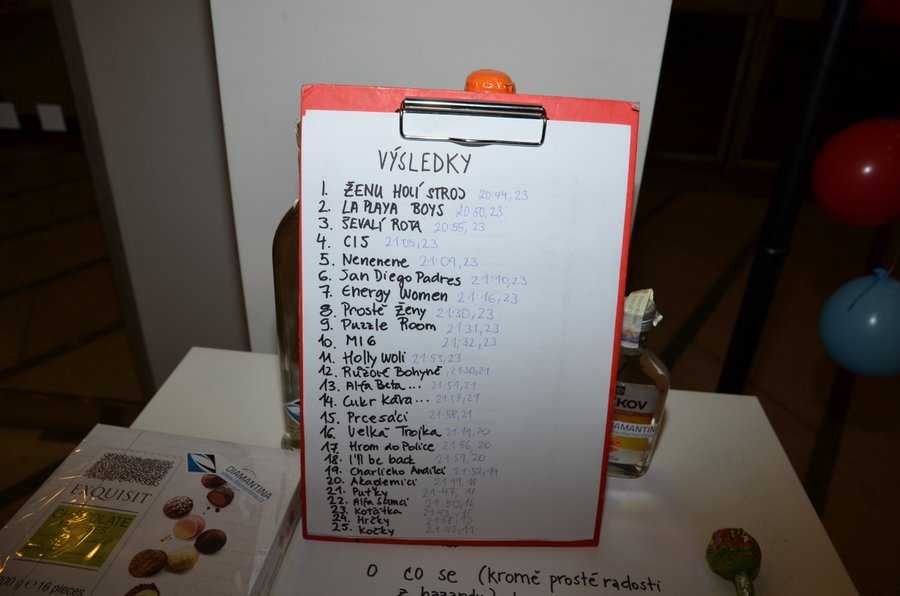 VÝSLEDKY
1. ŽENU HOLÍ STROJ 20:44, 23
2. LA PLAYA BOYS 20:50, 23
3. ŠEVALÍ ROTA 20:55, 23
4. CIS 21:05, 23
5. Nenenene 21:09, 23
6. San Diego Padres 21:10, 23
7. Energy Women 21:16, 23
8. Prostě ženy 21:30, 23
9. Puzzle Room 21:31, 23
10. MI6 21:32, 23
11. Holly Woli 21:53, 23
12. Růžové Bohyně 21:30, 21
13. Alfa Beta... 21:51, 21
14. Cukr Káva... 21:57, 21
15. Prcesáci 21:58, 21
16. Velká Trojka 21:19, 20
17. Hrom do Police 21:56, 20
18. I'll be back 21:59, 20
19. Charlieho Andílci 21:32, 19
20. Akademici 21:49, 18
21. Puťky 21:47, 17
22. Alfa Samci 21:50, 16
23. Koťátka 21:43, 15
24. Hrčky 21:58, 13
25. Kočky 21:45, 11
EXQUISIT
DIAMANTINA
CHOCOLATE
200 g e 16 pieces
DIAMANTINA
O co se (kromě prosté radosti
z hazardu)